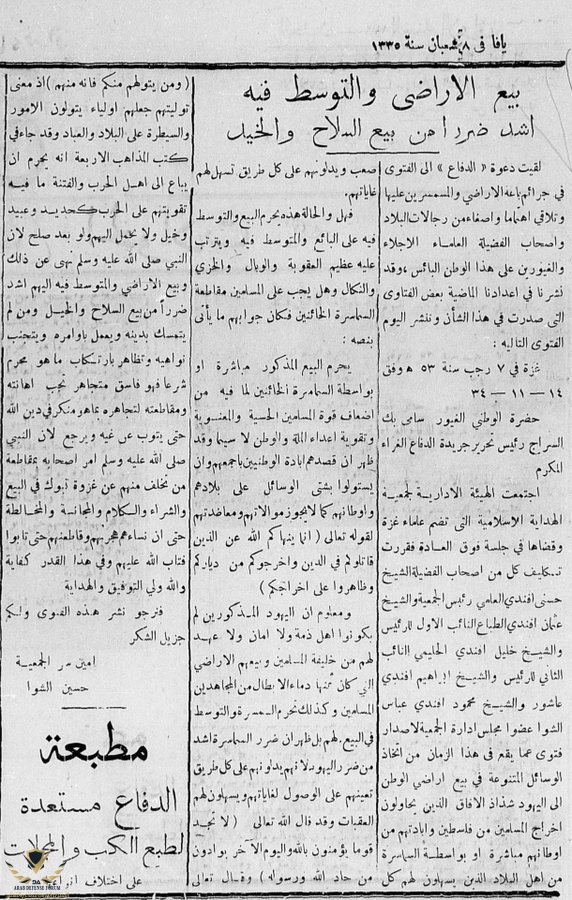 يافا فى ٨ شعبان سنة ١٣٣٥
بيع الاراضى والتوسط فيه
اشد ضررا من بيع السلاح والخيل
لقيت دعوة « الدفاع » الى الفتوى
فى جرائم باعة الاراضي والمسمسرين عليها
وتلاقي اهتماما واصغاء من رجالات البلاد
واصحاب الفضيلة العلماء الاجلاء
والغيورين على هذا الوطن البائس ، وقد
نشرنا في اعدادنا الماضية بعض الفتاوى
التى صدرت في هذا الشأن وننشر اليوم
الفتوى التالية :
غزة في ٧ رجب سنة ٥٣ وفق
١٤ — ١١ — ٣٤
حضرة الوطني الغيور سامى بك
السراج رئيس تحرير جريدة الدفاع الغراء
المكرم
اجتمعت الهيئة الادارية لجمعية
الهداية الاسلامية التى تضم علماء غزة
وقضاها في جلسة فوق العادة فقررت
تكليف كل من اصحاب الفضيلة الشيخ
حسنى افندي العامي رئيس الجمعية والشيخ
عثمان افندي الطباع النائب الاول للرئيس
والشيخ خليل افندي الحليمي النائب
الثاني للرئيس والشيخ ابراهيم افندي
عاشور والشيخ محمود افندي عباس
الشوا عضوا مجلس ادارة الجمعية لاصدار
فتوى عما يقع في هذا الزمان من اتخاذ
الوسائل المتنوعة في بيع اراضي الوطن
الى اليهود شذاذ الافاق الذين يحاولون
اخراج المسلمين من فلسطين وابادتهم من
اوطانهم مباشرة او بواسطة السماسرة
من اهل البلاد الذين يسهلون لهم كل
صعب ويدلونهم على كل طريق تسهل لهم
غاياتهم .
فهل والحالة هذه نحرم البيع والتوسط
فيه على البائع والمتوسط فيه ويترتب
عليه عظيم العقوبة والوبال والخزي
والنكال وهل يجب على المسلمين مقاطعة
السماسرة الخائنين فكان جوابهم ما يأتى
بنصه :
يحرم البيع المذكور مباشرة او
بواسطة السماسرة الخائنين لما فيه من
اضعاف قوة المسلمين الحسية والمعنوية
وتقوية اعداء الملة والوطن لا سيما وقد
ظهر ان قصدهم ابادة الوطنيين باجمعهم وان
يستولوا بشتى الوسائل على بلادهم
واوطانهم كما لا يجوز موالاتهم ومعاضدتهم
لقوله تعالى ( انما ينهاكم الله عن الذين
قاتلوكم في الدين واخرجوكم من دياركم
وظاهروا على اخراجكم )
ومعلوم ان اليهود المذكورين لم
يكونوا اهل ذمة ولا امان ولا عهد
لهم من خليفة المسلمين وبيعهم الاراضي
التي كان ثمنها دماء الابطال من المجاهدين
المسلمين وكذلك نحرم السمسرة والتوسط
في البيع لهم بل ظهر ان ضرر السماسرة اشد
من ضرر اليهود لانهم يدلونهم على كل طريق
تعينهم على الوصول لغاياتهم ويسهلون لهم
العقبات وقد قال الله تعالى ( لا تجد
قوما يؤمنون بالله واليوم الآخر يوادون
من حاد الله ورسوله ) وقال تعالى
( ومن يتولهم منكم فانه منهم ) اذ معنى
توليتهم جعلهم اولياء يتولون الامور
والسيطرة على البلاد والعباد وقد جاء في
كتب المذاهب الاربعة انه يحرم ان
يباع الى اهل الحرب والفتنة ما فيه
تقويتهم على الحرب كحديد وعبيد
وخيل ولا يحمل اليهم ولو بعد صلح لان
النبي صلى الله عليه وسلم نهى عن ذلك
وبيع الاراضي والمتوسط فيه اليهم اشد
ضرراً من بيع السلاح والخيل ومن لم
يتمسك بدينه ويعمل باوامره ويتجنب
نواهيه وتظاهر بارتكاب ما هو محرم
شرعا فهو فاسق متجاهر تجب اهانته
ومقاطعته لتجاهره بما هو منكر في دين الله
حتى يتوب عن غيه ويرجع لان النبي
صلى الله عليه وسلم امر اصحابه بمقاطعة
من تخلف منهم عن غزوة تبوك في البيع
والشراء والكلام والمجانسة والمخالطة
حتى ان نساءهم هجرتهم وقاطعنهم حتى تابوا
فتاب الله عليهم وفي هذا القدر كفاية
والله ولي التوفيق والهداية
فنرجو نشر هذه الفتوى ولكم
جزيل الشكر
امين سر الجمعية
حسين الشوا
مطبعة
الدفاع مستعدة
لطبع الكتب والمجلات
على اختلاف انواع
ARAB DEFENSE FORUM